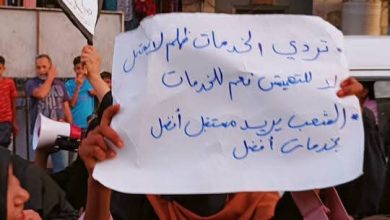 . تردي الخدمات ظلم لا يحتمل
لا للتعيش نعم للخدمات
. الشعب يريد مستقبل أفضل
بخدمات أفضل